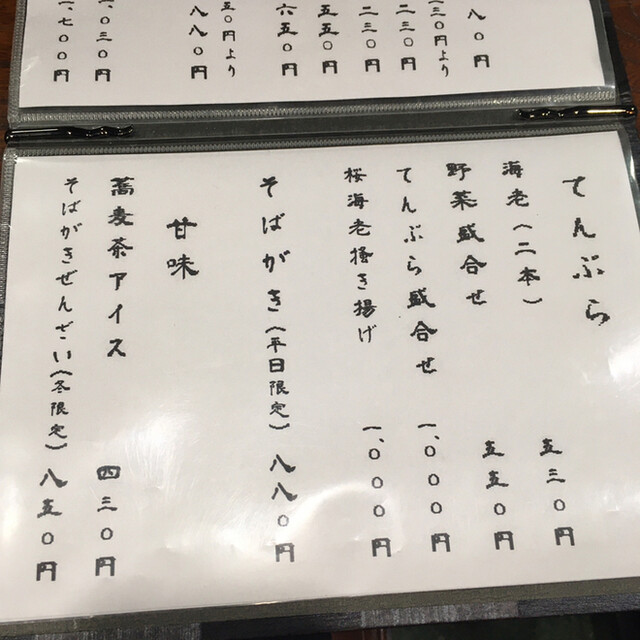 八〇円
一三〇円より
二三〇円
二三〇円
五五〇円
六五〇円
五〇円より
八八〇円
一、〇三〇円
一、七〇〇円
てんぷら
海老(二本) 五三〇円
野菜盛合せ 五五〇円
てんぷら盛合せ 一、〇〇〇円
桜海老掻き揚げ 一、〇〇〇円
そばがき(平日限定) 八八〇円
甘味
蕎麦茶アイス 四三〇円
そばがきぜんざい(冬限定) 八五〇円